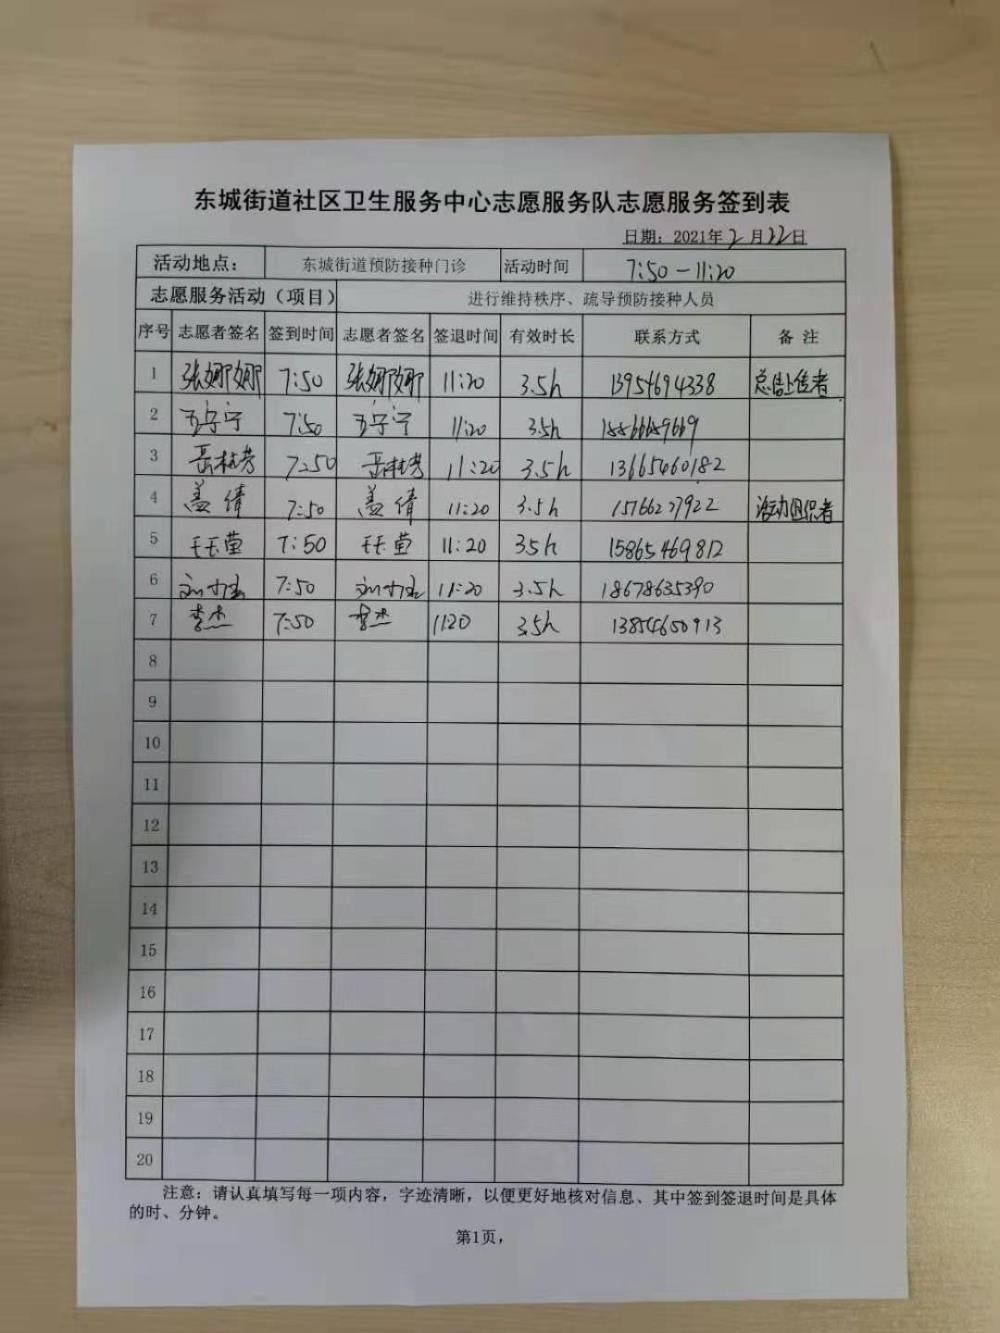 东城街道社区卫生服务中心志愿服务队志愿服务签到表
日期：2021年2月22日
活动地点： 东城街道预防接种门诊 活动时间 7:50-11:20
志愿服务活动（项目） 进行维持秩序、疏导预防接种人员
序号 志愿者签名 签到时间 志愿者签名 签退时间 有效时长 联系方式 备 注
1 张娜娜 7:50 张娜娜 11:20 3.5h 13954694338
2 宁宁 7:50 宁宁 11:20 3.5h
3 7:50 11:20 3.5h 13665460182
4 盖倩 7:50 盖倩 11:20 3.5h 15766227922 活动组织者
5 王莹 7:50 王莹 11:20 3.5h 15865469812
6 刘 7:50 刘 11:20 3.5h 18678635390
7 李杰 7:50 李杰 1120 3.5h 13854650913
8
9
10
11
12
13
14
15
16
17
18
19
20
注意：请认真填写每一项内容，字迹清晰，以便更好地核对信息、其中签到签退时间是具体
的时、分钟。
第1页，